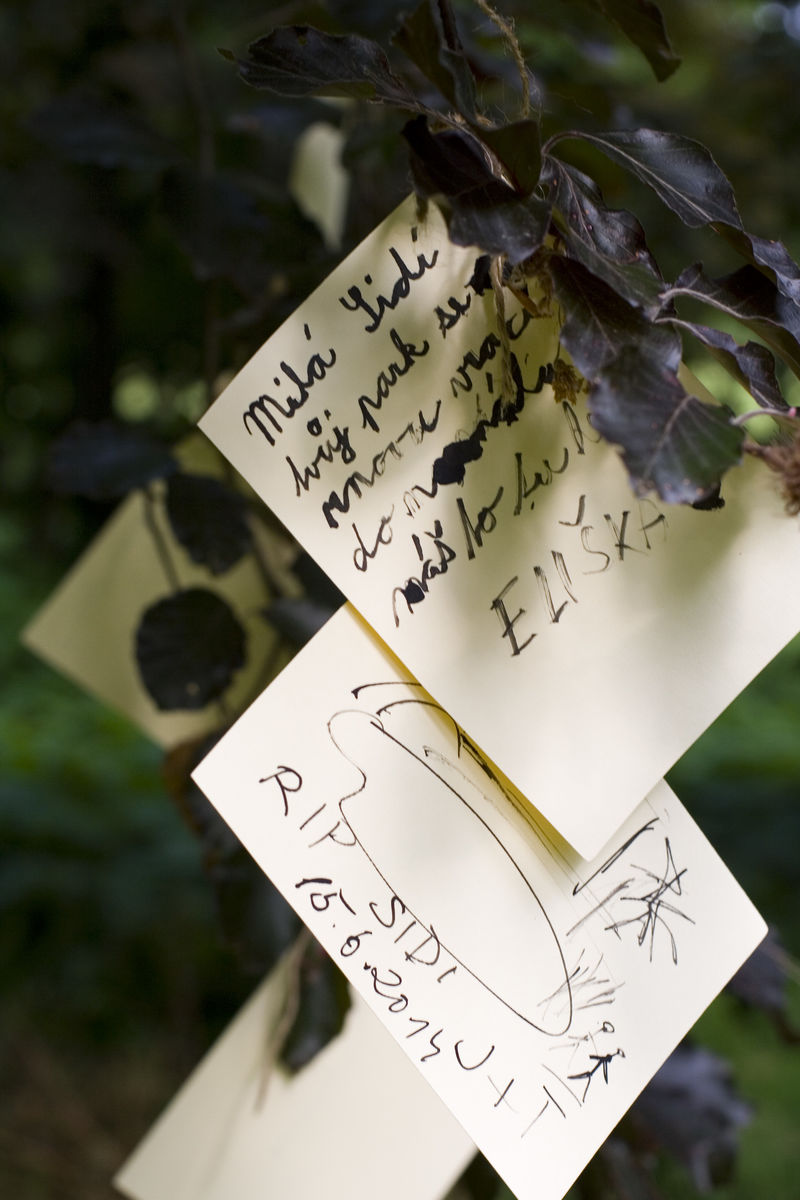 Milá Sidi
tvůj park se
znovu vrací
do
máš to tu
ELIŠKA
RIP SIDI
15.6.2014 U+T